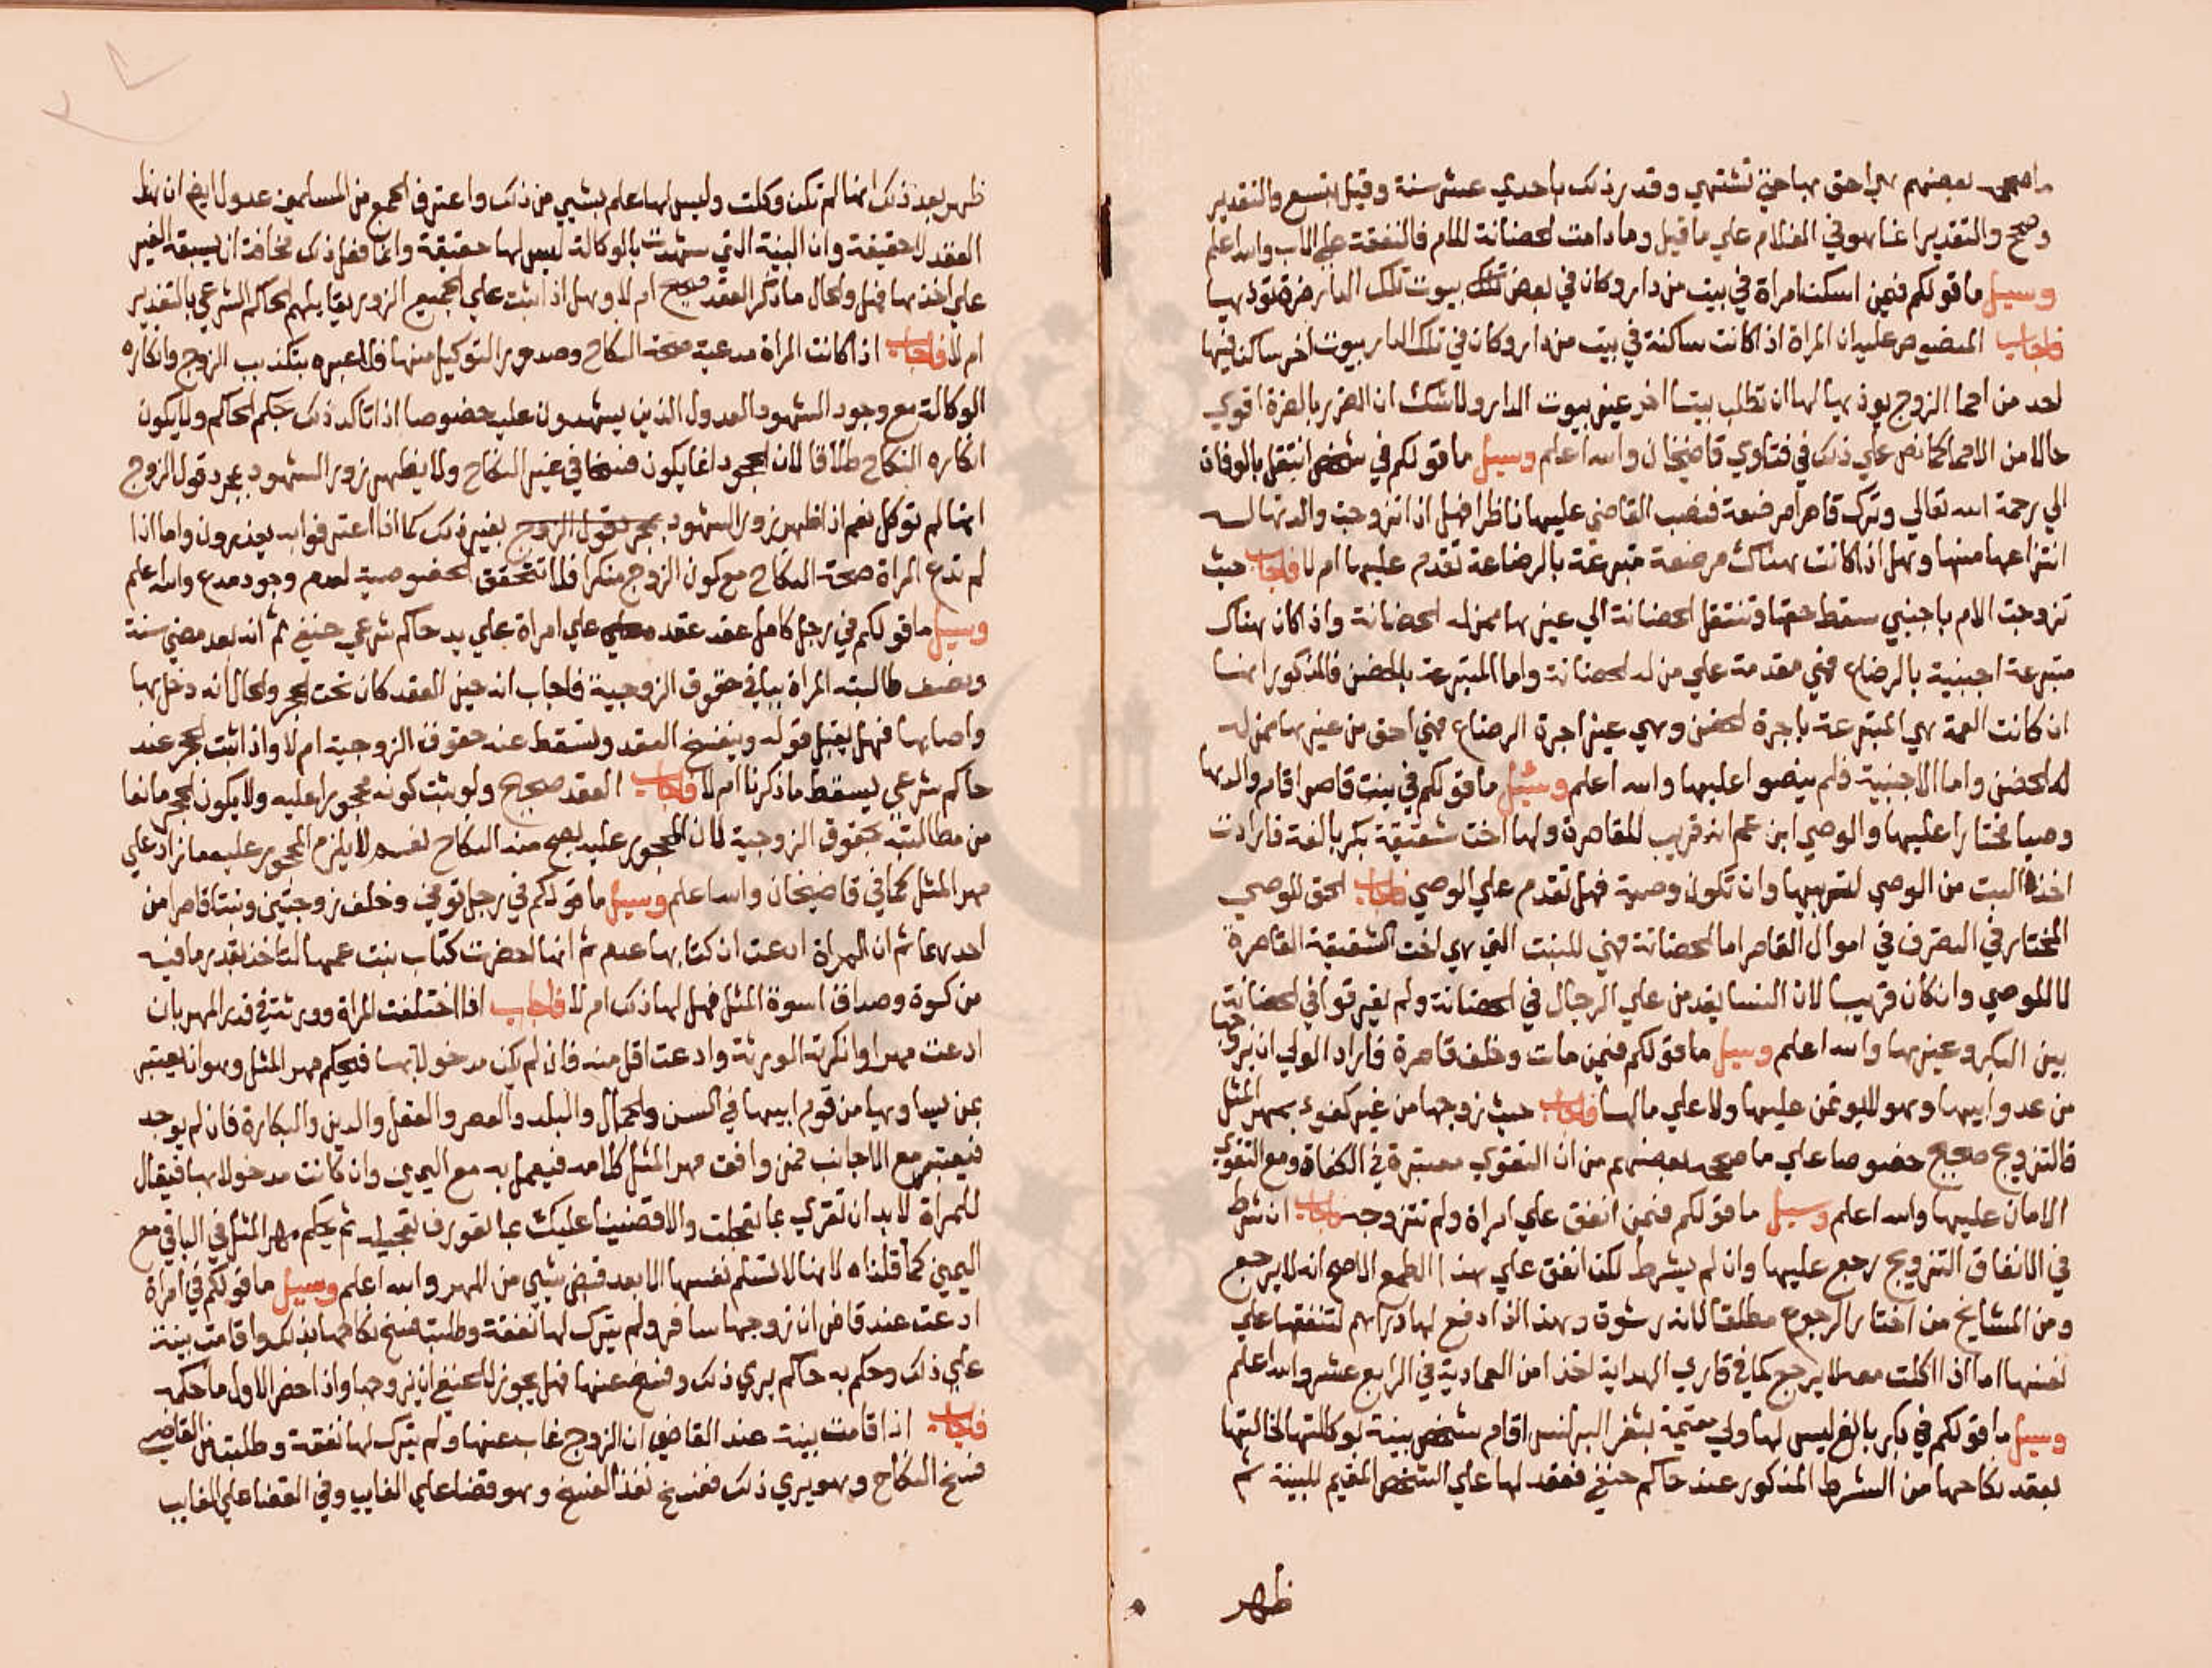 ما صححه بعضهم هي احق بها حتي تشتهي وقدر ذلك باحدي عشر سنة وقيل بتسع والتقدير
وصحح والتقدير انما هو في الغلام علي ما قيل وما دامت الحضانة للام فالنفقة علي الاب والله اعلم
وسيل ما قولكم فيمن اسكن امراة في بيت من دار وكان في بعض بيوت تلك الدار ضرة تؤذيها
فاجاب المنصوص عليه ان المراة اذا كانت ساكنة في بيت من دار وكان في تلك الدار بيوت اخر ساكن فيها
احد من احما الزوج يوذيها لها ان تطلب بيتا اخر غير بيوت الدار ولا شك ان الضرر بالضرة اقوي
حالا من الاحما كما نص علي ذلك في فتاوي قاضيخان والله اعلم وسيل ما قولكم في شخص انتقل بالوفاة
الي رحمة الله تعالي وترك قاصرا مرضعة فنصب القاضي عليها ناظرا فهل اذا تزوجت والدتها له
انتزاعها منها وهل اذا كانت هناك مرضعة متبرعة بالرضاعة تقدم عليها ام لا فاجاب حيث
تزوجت الام باجنبي سقط حقها وتنتقل الحضانة الي غيرها ممن له الحضانة واذا كان هناك
متبرعة اجنبية بالرضاع فهي مقدمة علي من له الحضانة واما المتبرعة بالحضن فالمذكور انها
ان كانت العمة هي المتبرعة باجرة الحضن وهي غير اجرة الرضاع فهي احق من غيرها ممن له
له الحضن واما الاجنبية فلم ينصوا عليها والله اعلم وسيل ما قولكم في بنت قاصر اقام والدها
وصيا مختارا عليها والوصي ابن عم انه قريب للقاصرة ولها اخت شقيقة بكر بالغة فارادت
اخذ البنت من الوصي لتربيها وان تكون وصية فهل تقدم علي الوصي فاجاب الحق للوصي
المختار في التصرف في اموال القاصر اما الحضانة فهي للبنت التي هي اخت الشقيقة القاصرة
لا للموصي وان كان قريبا لان النسا يقدمن علي الرجال في الحضانة ولم يفرقوا في الحضانة
بين البكر وغيرها والله اعلم وسيل ما قولكم فيمن مات وخلف قاصرة فاراد الولي ان يزوجها
من عدو ابيها وهو لا يؤمن عليها ولا علي مالها فاجاب حيث زوجها من غير كفوء بمهر المثل
فالتزويج صحيح خصوصا علي ما صححه بعضهم من ان التقوي معتبرة في الكفاة ومع التقوي
الامان عليها والله اعلم وسيل ما قولكم فيمن انفق علي امراة ولم تتزوجه فاجاب ان شرط
في الانفاق التزويج رجع عليها وان لم يشرط لكن انفق علي هذا الطمع الاصح انه لا يرجع
ومن المشايخ من اختار الرجوع مطلقا لانه رشوة وهذا اذا دفع لها دراهم لتنفقها علي
نفسها اما اذا اكلت معه لا يرجع كما في قاري الهداية اخذا من العمادية في الرابع عشر والله اعلم
وسيل ما قولكم في بكر بالغ ليس لها ولي مقيمة بثغر البرلس اقام شخص بينة بوكالتها لخالتها
بعقد نكاحها من الشرط المذكور عند حاكم حنفي فعقد لها علي الشخص المقيم للبينة ثم
ظهر
ظهر بعد ذلك انها لم تكن وكلت وليس لها علم بشيي من ذلك واعترف الجمع من المسلمين عدول ايضا ان هذا
العقد لا حقيقة وان البينة التي شهدت بالوكالة ليس لها حقيقة وانما فعل ذلك مخافة ان يسبقه الغير
علي اخذها فهل والحال ما ذكر العقد صحيح ام لا وهل اذا ثبت علي الجميع الزور يقابلهم الحاكم الشرعي بالتعذير
ام لا فاجاب اذا كانت المراة مدعية صحة النكاح وصدور التوكيل منها فلا عبره بتكذيب الزوج وانكاره
الوكالة مع وجود الشهود العدول الذين يشهدون عليه خصوصا اذا تاكد ذلك بحكم الحاكم ولا يكون
انكاره النكاح طلاقا لان الجحود انما يكون فسخا في غير النكاح ولا يظهر زور الشهود بمجرد قول الزوج
انها لم توكل نعم اذا ظهر زور الشهود بمجرد قول الزوج بغير ذلك كما اذا اعترفوا به يعذرون واما اذا
لم تدع المراة صحة النكاح مع كون الزوج منكرا فلا تتحقق الخصوصية لعدم وجود مدع والله اعلم
وسيل ما قولكم في رجل كامل عقد عقده علي امراة علي يد حاكم شرعي حنفي ثم انه بعد مضي سنة
ونصف طالبته المراة بباقي حقوق الزوجية فاجاب انه حين العقد كان تحت الحجر والحال انه دخل بها
واصابها فهل يقبل قوله وينفسخ العقد وتسقط عنه حقوق الزوجية ام لا واذا ثبت الحجر عند
حاكم شرعي يسقط ما ذكرنا ام لا فاجاب العقد صحيح ولو ثبت كونه محجورا عليه ولا يكون الحجر مانعا
من مطالبته بحقوق الزوجية لان المحجور عليه يصح منه النكاح لنفسه لا يلزم المحجور عليه ما زاد علي
مهر المثل كما في قاضيخان والله اعلم وسيل ما قولكم في رجل توفي وخلف زوجتين وبنتا قاصرا من
احدهما ثم ان المراة ادعت ان كتابها عدم ثم انها احضرت كتاب بنت عمها لتاخذ بقدر ما فيه
من كسوة وصداق اسوة المثل فهل لها ذلك ام لا فاجاب اذا اختلفت المراة وورثته في قدر المهر بان
ادعت مهرا وانكرته الورثة وادعت اقل منه فان لم يكن مدخولا بها فيحكم مهر المثل وهو ان يعتبر
بمن يساويها من قوم ابيها في السن والجمال والبلد والعصر والعقل والدين والبكارة فان لم يوجد
فيعتبر مع الاجانب فمن وافقت مهر المثل كلامه فيعمل به مع اليمين وان كانت مدخولا بها فيقال
للمراة لا بد ان تقري بما تعجلت والا قضينا عليك بما تعورف تعجيله ثم يحكم مهر المثل في الباقي مع
اليمين كما قلناه لانها لا تسلم نفسها الا بعد قبض شيي من المهر والله اعلم وسيل ما قولكم في امراة
ادعت عند قاض ان زوجها سافر ولم يترك لها نفقة وطلبت فسخ نكاحها بذلك واقامت بينة
علي ذلك وحكم به حاكم يري ذلك وفسخ عنها فهل يجوز للحنفي ان يزوجها واذا حضر الاول ما حكمه
فاجاب اذا قامت بينة عند القاضي ان الزوج غاب عنها ولم يترك لها نفقة وطلبت من القاضي
فسخ النكاح وهو يري ذلك ففسخ نفذ الفسخ وهو قضا علي الغايب وفي القضا علي الغايب